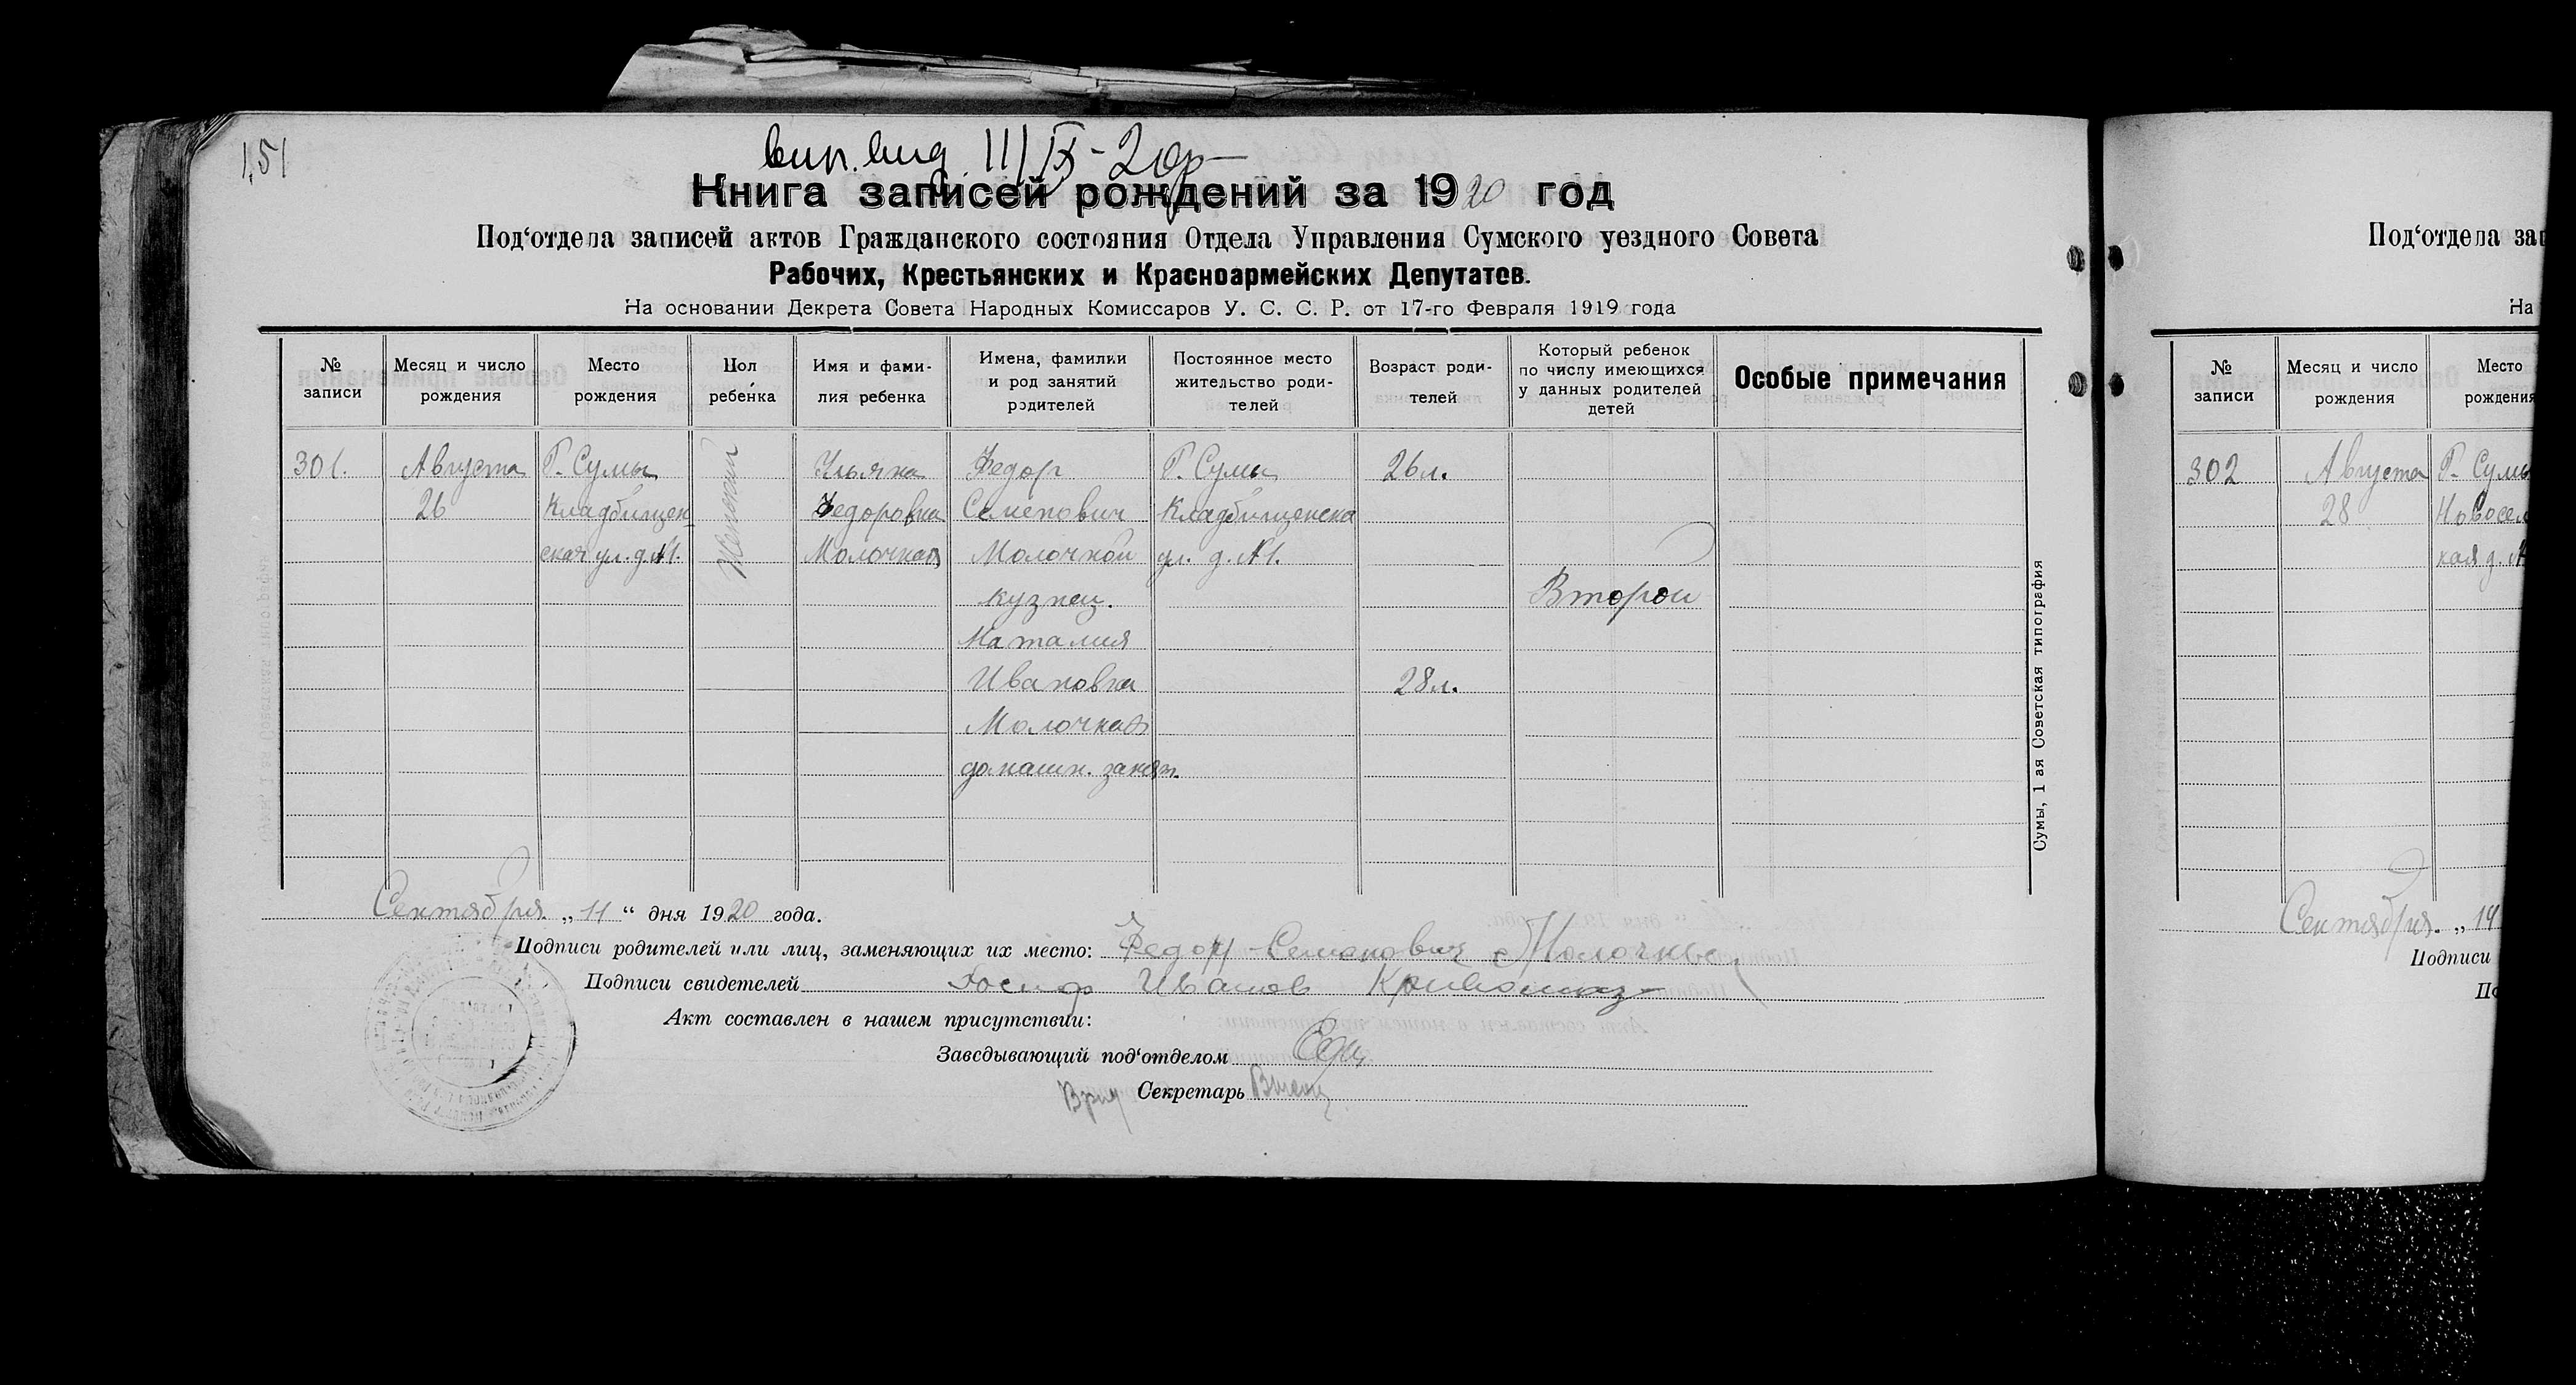 151
вип. вид. 11/IX-20р
Книга записей рождений за 1920 год
Под‘отдела записей актов Гражданского состояния Отдела Управления Сумского уездного Совета
Рабочих, Крестьянских и Красноармейских Депутатов.
На основании Декрета Совета Народных Комиссаров У. С. С. Р. от 17-го Февраля 1919 года
№ записи
Месяц и число рождения
Место рождения
Пол ребенка
Имя и фами-
лия ребенка
Имена, фамилии
и род занятий
родителей
Постоянное место
жительство роди-
телей
Возраст роди-
телей
Который ребенок
по числу имеющихся
у данных родителей
детей
Особые примечания
301.
Августа
26
Г. Сумы
Кладбищен
ская ул. д. №1.
Женский
Ульяна
Федоровна
Молочная
Федор
Семенович
Молочной
кузнец.
Наталия
Ивановна
Молочная
домашн. занят.
Г. Сумы
Кладбищенска
ул. д. №1.
26л.
28л.
Второй
Сентября „11“ дня 1920 года.
Подписи родителей или лиц, заменяющих их место: Федор Семенович Молочный
Подписи свидетелей Иванов
Акт составлен в нашем присутствии:
Заведывающий под‘отделом
Врид Секретарь
Сумы, 1 ая Советская типография
Под‘отдела зап
На
№ записи
Месяц и число рождения
Место
рождения
302
Августа
28
Г. Сумы
Новосел
кая д. №
Сентября. „14
Подписи
По